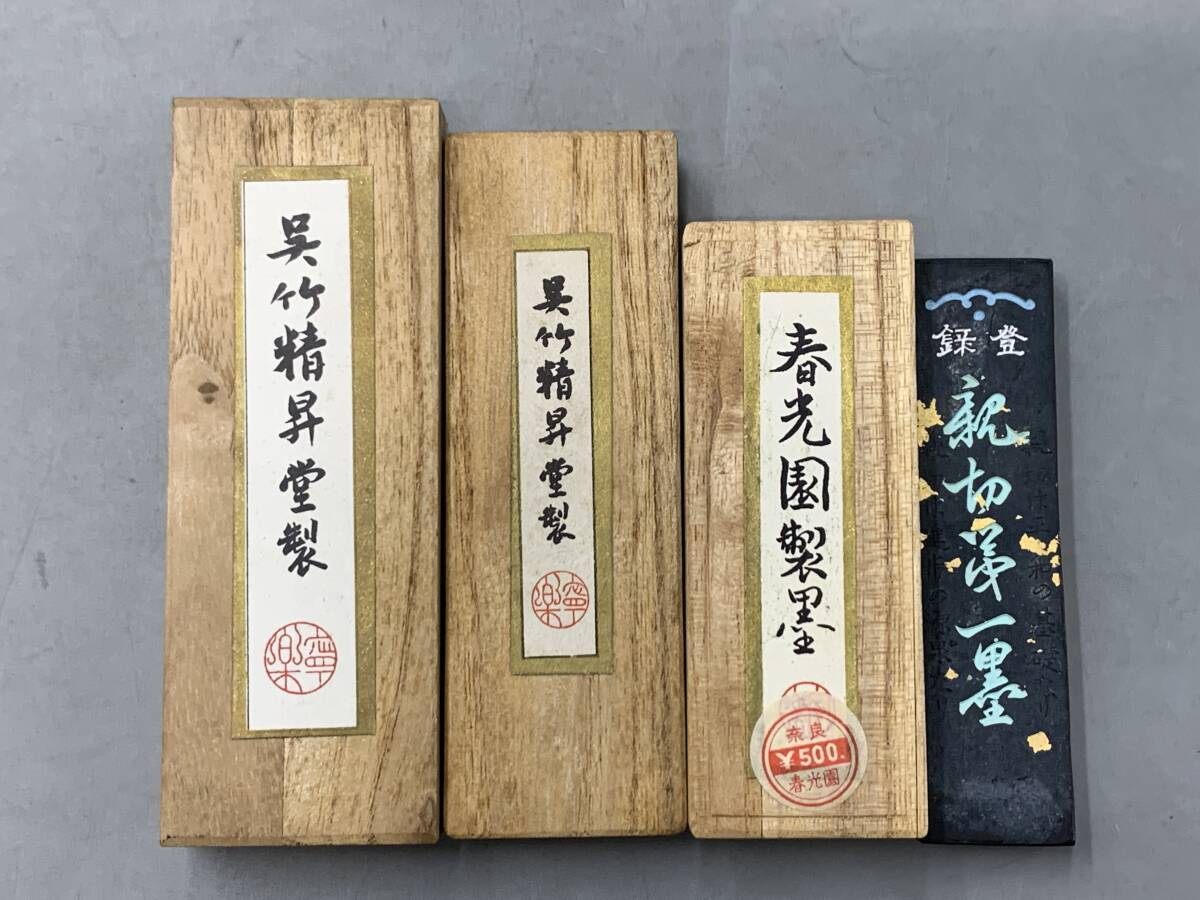 呉竹精昇堂製
寧楽
呉竹精昇堂製
寧楽
春光園製墨
奈良
¥500.
春光園
登録
親切第一墨